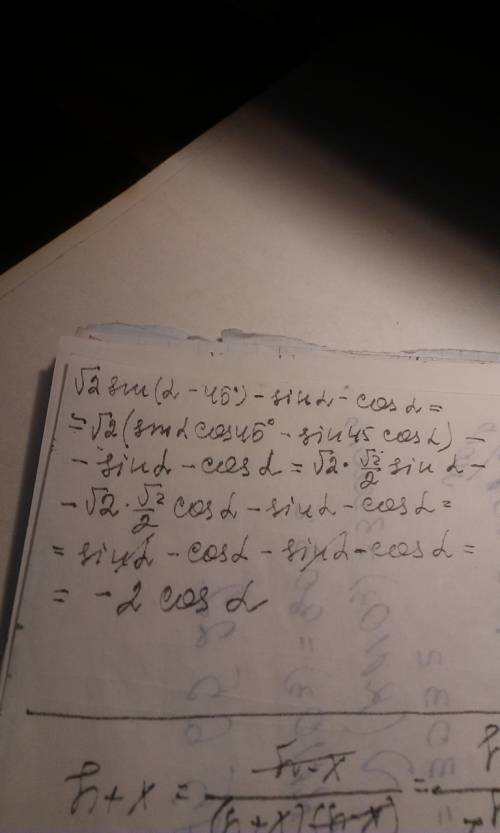 √2 sin(α - 45°) - sinα - cosα =
= √2(sinα cos45° - sin45 cosα) -
- sinα - cosα = √2 · √2/2 sinα -
- √2 · √2/2 cosα - sinα - cosα =
= sinα - cosα - sinα - cosα =
= - 2 cosα